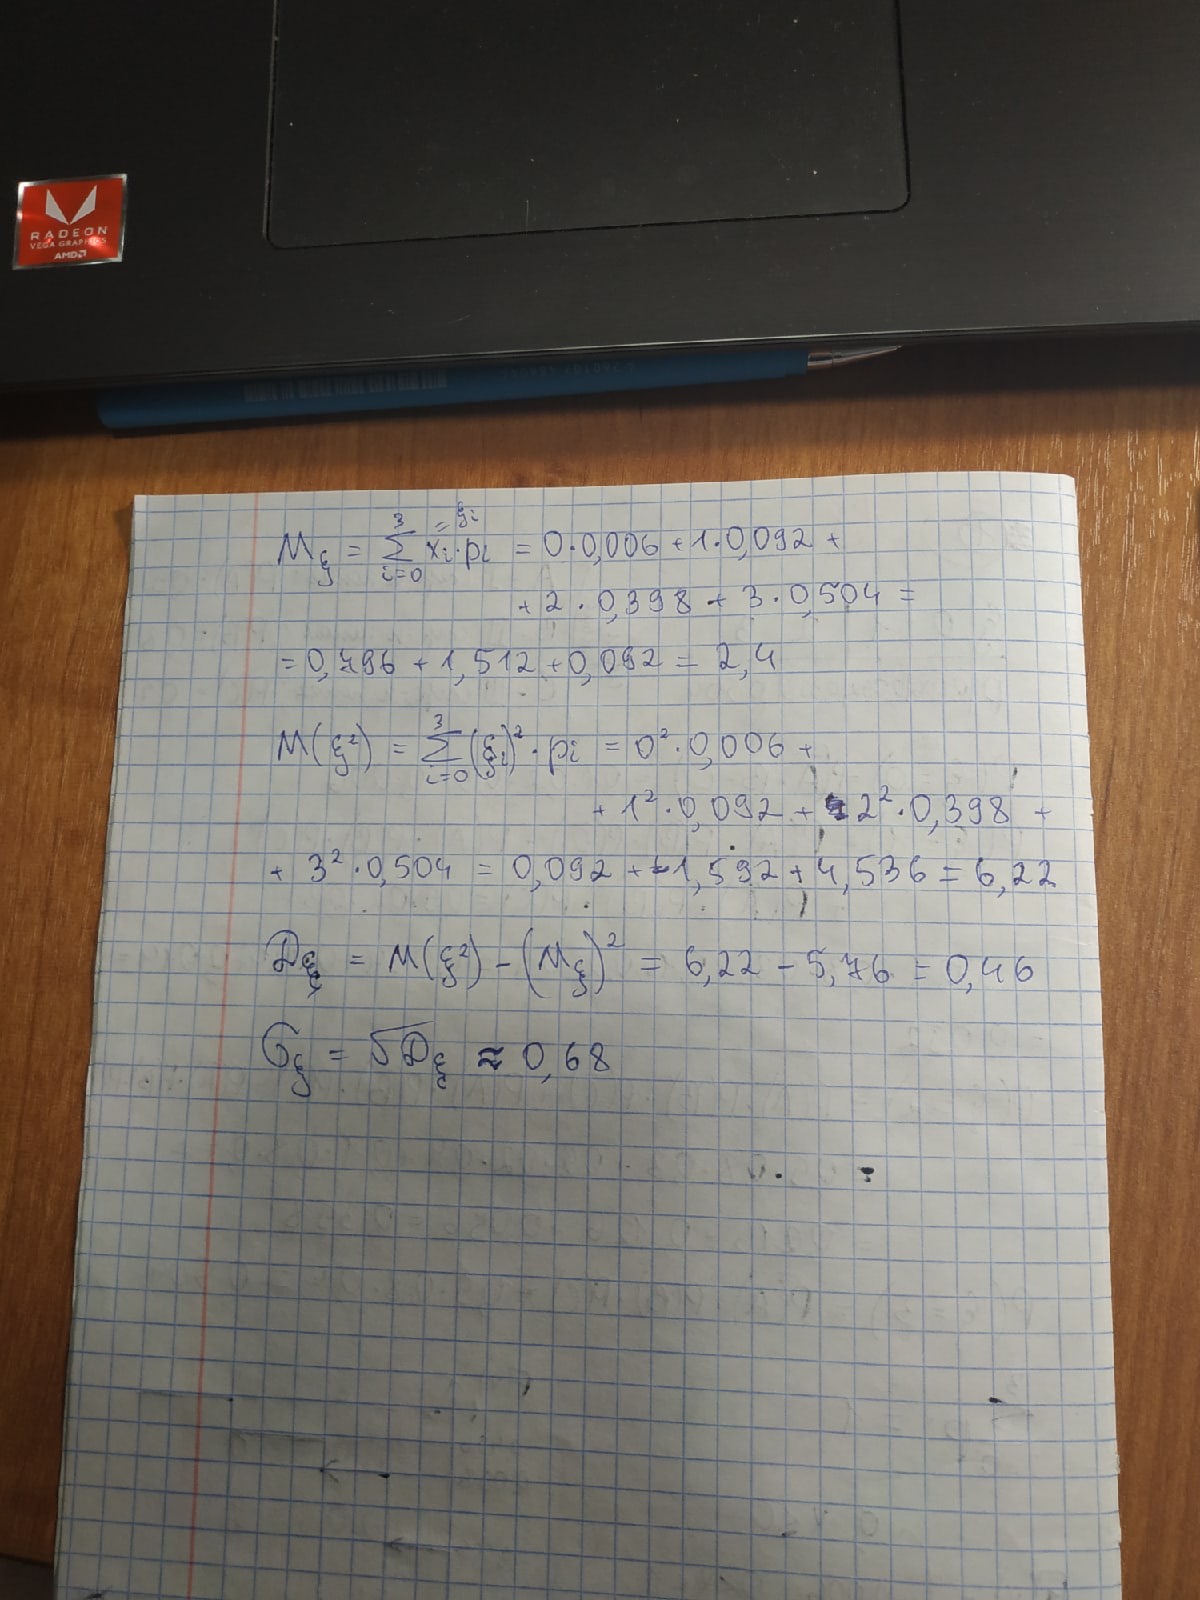 RADEON
VEGA GRAPHICS
AMD
M_ξ = ∑_{i=0}^{3} x_i^{= ξ_i} · p_i = 0 · 0,006 + 1 · 0,092 +
+ 2 · 0,398 + 3 · 0,504 =
= 0,796 + 1,512 + 0,092 = 2,4
M(ξ²) = ∑_{i=0}^{3} (ξ_i)² · p_i = 0² · 0,006 +
+ 1² · 0,092 + 2² · 0,398 +
+ 3² · 0,504 = 0,092 + 1,592 + 4,536 = 6,22
D_ξ = M(ξ²) - (M_ξ)² = 6,22 - 5,76 = 0,46
σ_ξ = √D_ξ ≈ 0,68